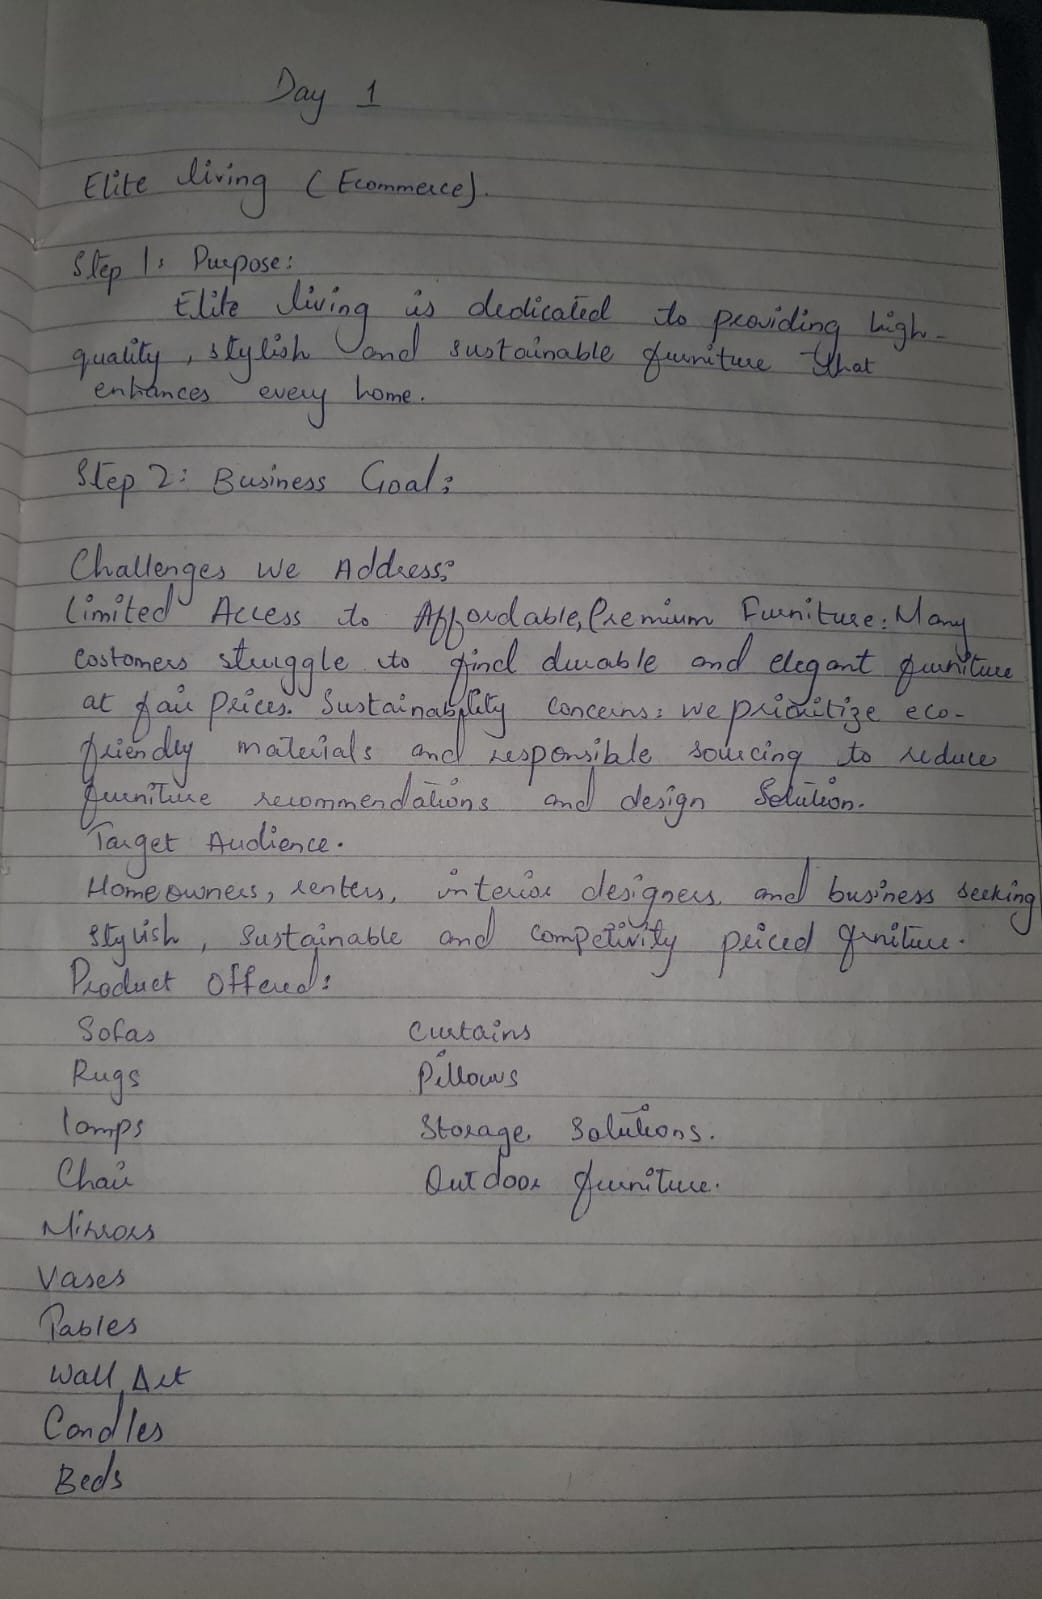 Day 1
Elite living (Ecommerce).
Step 1: Purpose:
Elite living is dedicated to providing high-
quality, stylish and sustainable furniture that
enhances every home.
Step 2: Business Goal:
Challenges We Address:
Limited Access to Affordable, Premium Furniture: Many
costomers struggle to find durable and elegant furniture
at fair prices. Sustainability concerns: we prioritize eco-
friendly materials and responsible sourcing to reduce
furniture recommendations and design Solution.
Target Audience.
Homeowners, renters, interior designers, and business seeking
stylish, sustainable and competivity priced frniture.
Product Offered:
Sofas Curtains
Rugs Pillows
lamps Storage Solutions.
Chair Outdoor furniture.
Mirrors
Vases
Tables
Wall Art
Candles
Beds